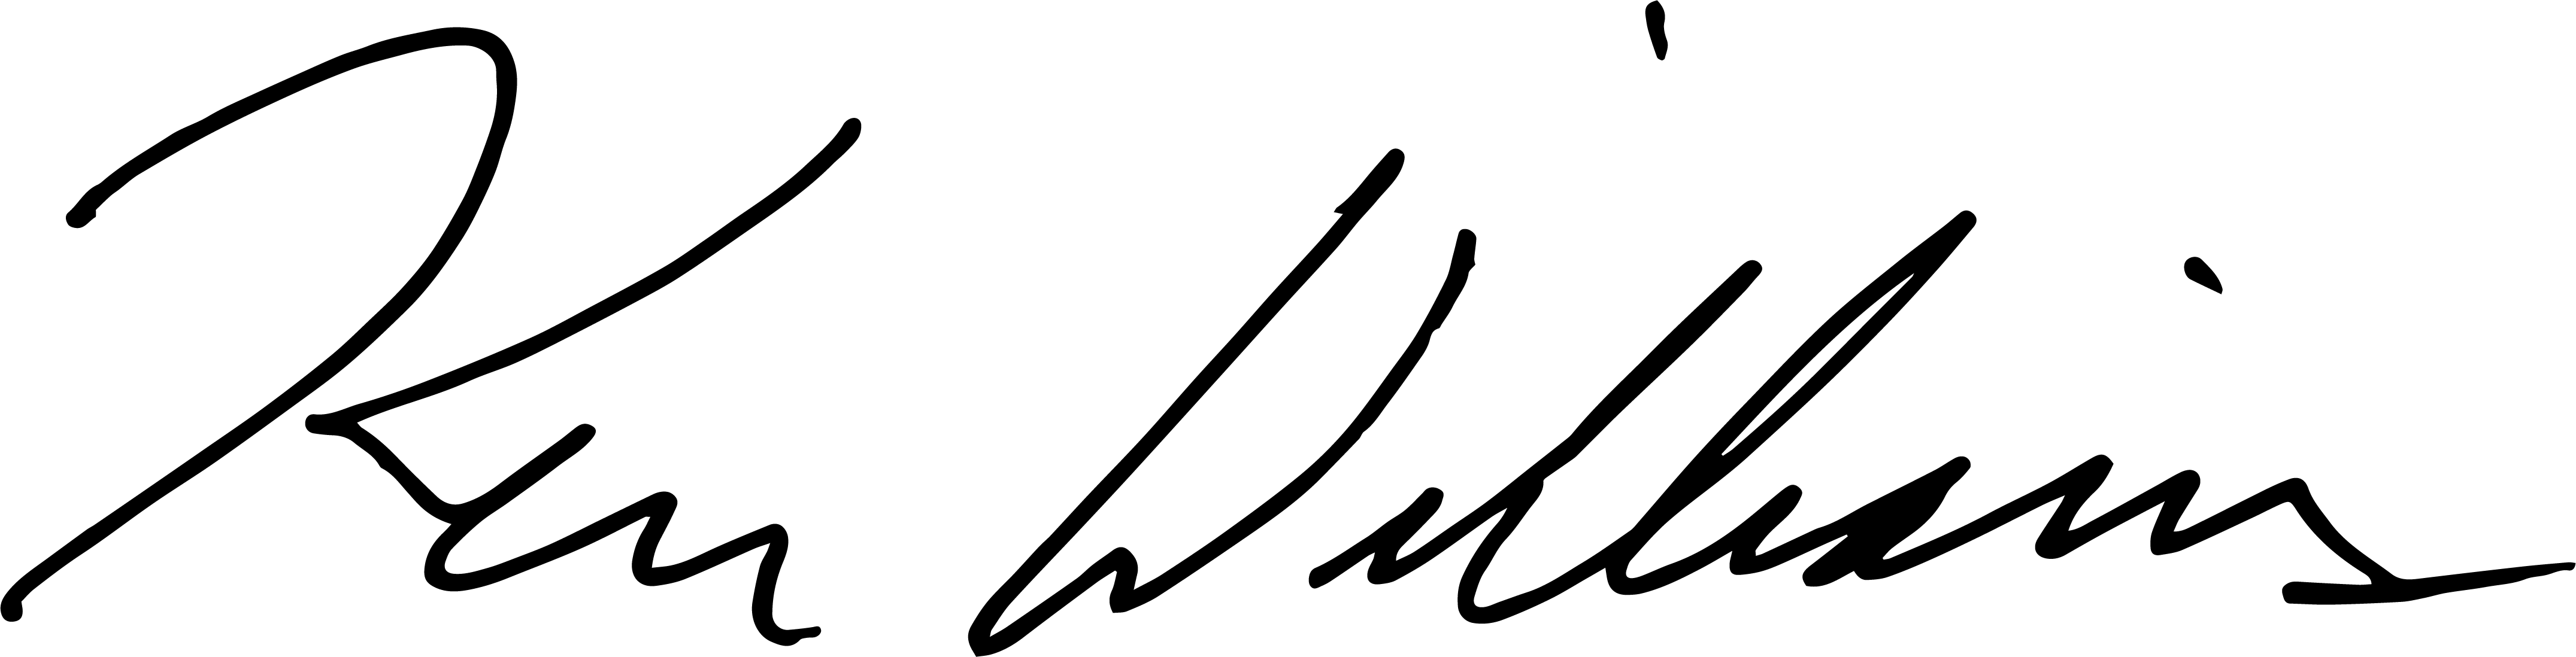 Ken Williams